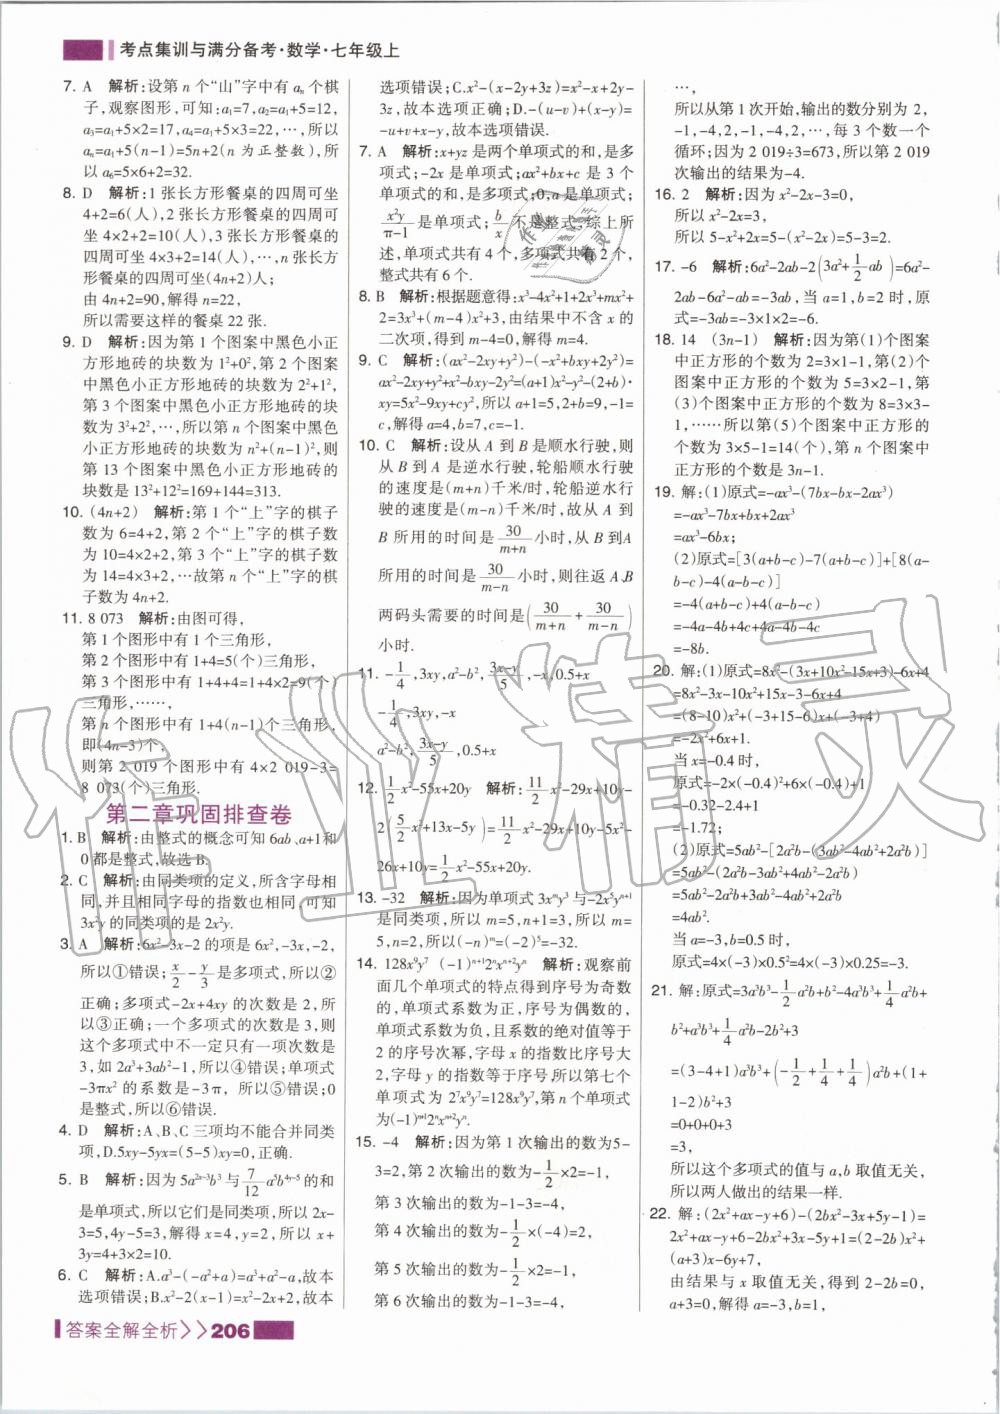 考点集训与满分备考·数学·七年级上
7. A　解析:设第 n 个“山”字中有 aₙ 个棋
子,观察图形,可知:a₁=7,a₂=a₁+5=12,
a₃=a₁+5×2=17,a₄=a₁+5×3=22,…,所以
aₙ=a₁+5(n-1)=5n+2(n 为正整数),所
以 a₆=5×6+2=32.
8. D　解析:1 张长方形餐桌的四周可坐
4+2=6(人),2 张长方形餐桌的四周可
坐 4×2+2=10(人),3 张长方形餐桌的
四周可坐 4×3+2=14(人),…,n 张长方
形餐桌的四周可坐(4n+2)人;
由 4n+2=90,解得 n=22,
所以需要这样的餐桌 22 张.
9. D　解析:因为第 1 个图案中黑色小正
方形地砖的块数为 1²+0²,第 2 个图案
中黑色小正方形地砖的块数为 2²+1²,
第 3 个图案中黑色小正方形地砖的块数为
3²+2²,…,所以第 n 个图案中黑色
小正方形地砖的块数为 n²+(n-1)²,则
第 13 个图案中黑色小正方形地砖的
块数是 13²+12²=169+144=313.
10. (4n+2)　解析:第 1 个“上”字的棋子
数为 6=4+2,第 2 个“上”字的棋子数
为 10=4×2+2,第 3 个“上”字的棋子数
为 14=4×3+2,…故第 n 个“上”字的棋
子数为 4n+2.
11. 8 073　解析:由图可得,
第 1 个图形中有 1 个三角形,
第 2 个图形中有 1+4=5(个)三角形,
第 3 个图形中有 1+4+4=1+4×2=9(个)
三角形,……,
第 n 个图形中有 1+4(n-1)个三角形,
即(4n-3)个,
则第 2 019 个图形中有 4×2 019-3=
8 073(个)三角形.
第二章巩固排查卷
1. B　解析:由整式的概念可知 6ab、a+1和
0都是整式,故选 B.
2. C　解析:由同类项的定义,所含字母相
同,并且相同字母的指数也相同,可知
3x²y 的同类项的是 2x²y.
3. A　解析:6x²-3x-2 的项是 6x²,-3x,-2,
所以①错误;x/2-y/3是多项式,所以②
正确;多项式-2x+4xy 的次数是 2,所
以③正确;一个多项式的次数是 3,则
这个多项式中不一定只有一项次数是
3,如 2a³+3a³,所以④错误;单项式
-3πx² 的系数是-3π,所以⑤错误;0
是整式,所以⑥错误.
4. D　解析:A、B、C 三项均不能合并同类
项,D.5xy-5yx=(5-5)xy=0,正确.
5. B　解析:因为 5a²ˣ⁻³b³ 与 7/12 a⁵b⁴ʸ⁻⁵ 的和
是单项式,所以它们是同类项,所以 2x-
3=5,4y-5=3,解得 x=4,y=2,所以 x+
3y=4+3×2=10.
6. C　解析:A.a³-(-a²+a)=a³+a²-a,故本
选项错误;B.x²-2(x-1)=x²-2x+2,故本
选项错误;C.x²-(x-2y+3z)=x²-x+2y-
3z,故本选项正确;D.-(u-v)+(x-y)=
-u+v+x-y,故本选项错误.
7. A　解析:x+yz 是两个单项式的和,是多
项式;-2x 是单项式;ax²+bx+c 是 3 个
单项式的和,是多项式;0,a 是单项式;
x²y/(π-1) 是单项式;b/x 不是整式,综上所
述,单项式共有 4 个,多项式共有 2 个,
整式共有 6 个.
8. B　解析:根据题意得:x³-4x²+1+2x³+mx²+
2=3x³+(m-4)x²+3,由结果中不含 x 的
二次项,得到 m-4=0,解得 m=4.
9. C　解析:(ax²-2xy+y²)-(-x²+bxy+2y²)=
ax²-2xy+y²+x²-bxy-2y²=(a+1)x²-y²-(2+b)·
xy=5x²-9xy+cy²,所以 a+1=5,2+b=9,-1=
c,解得 a=4,b=7,c=-1.
10. C　解析:设从 A 到 B 是顺水行驶,则
从 B 到 A 是逆水行驶,轮船顺水行驶
的速度是(m+n)千米/时,轮船逆水行
驶的速度是(m-n)千米/时,故从 A 到
B 所用的时间是 30/(m+n) 小时,从 B到A
所用的时间是 30/(m-n) 小时,则往返 A、B
两码头需要的时间是(30/(m+n)+30/(m-n))
小时.
11. -1/4,3xy,a²-b²,(3x-y)/5,-x,0.5+x
-1/4,3xy,-x
a²-b²,(3x-y)/5,0.5+x
12. 1/2x²-55x+20y　解析:11/2x²-29x+10y-
2(5/2x²+13x-5y)=11/2x²-29x+10y-5x²-
26x+10y=1/2x²-55x+20y.
13. -32　解析:因为单项式 3xᵐy³ 与-2x⁵yⁿ⁺¹
是同类项,所以 m=5,n+1=3,所以 m=
5,n=2,所以(-n)ᵐ=(-2)⁵=-32.
14. 128x⁹y⁷　(-1)ⁿ⁺¹2ⁿxⁿ⁺²yⁿ　解析:观察前
面几个单项式的特点得到序号为奇数
的,单项式系数为正,序号为偶数的,
单项式系数为负,且系数的绝对值等于
2 的序号次幂,字母 x 的指数比序号大
2,字母 y 的指数等于序号,所以第七个
单项式为 2⁷x⁹y⁷=128x⁹y⁷,第 n 个单项式
为(-1)ⁿ⁺¹2ⁿxⁿ⁺²yⁿ.
15. -4　解析:因为第 1 次输出的数为5-
3=2,第 2 次输出的数为-1/2×2=-1,
第 3 次输出的数为-1-3=-4,
第 4 次输出的数为-1/2×(-4)=2,
第 5 次输出的数为-1/2×2=-1,
第 6 次输出的数为-1-3=-4,
…,
所以从第 1 次开始,输出的数分别为 2,
-1,-4,2,-1,-4,2,…,每 3 个数一个
循环;因为 2 019÷3=673,所以第 2 019
次输出的结果为-4.
16. 2　解析:因为 x²-2x-3=0,
所以 x²-2x=3,
所以 5-x²+2x=5-(x²-2x)=5-3=2.
17. -6　解析:6a²-2ab-2(3a²+1/2ab)=6a²-
2ab-6a²-ab=-3ab,当 a=1,b=2 时,原
式=-3ab=-3×1×2=-6.
18. 14　(3n-1)　解析:因为第(1)个图案
中正方形的个数为 2=3×1-1,第(2)个
图案中正方形的个数为 5=3×2-1,第
(3)个图案中正方形的个数为 8=3×3-
1,……所以第(5)个图案中正方形的
个数为 3×5-1=14(个),第 n 个图案中
正方形的个数是 3n-1.
19. 解:(1)原式=-ax³-(7bx-bx-2ax³)
=-ax³-7bx+bx+2ax³
=ax³-6bx;
(2)原式=[3(a+b-c)-7(a+b-c)]+[8(a-
b-c)-4(a-b-c)]
=-4(a+b-c)+4(a-b-c)
=-4a-4b+4c+4a-4b-4c
=-8b.
20. 解:(1)原式=8x²-(3x+10x²-15x+3)-6x+4
=8x²-3x-10x²+15x-3-6x+4
=(8-10)x²+(-3+15-6)x+(-3+4)
=-2x²+6x+1.
当 x=-0.4 时,
原式=-2×(-0.4)²+6×(-0.4)+1
=-0.32-2.4+1
=-1.72;
(2)原式=5ab²-[2a²b-(3ab²-4ab²+2a²b)]
=5ab²-(2a²b-3ab²+4ab²-2a²b)
=5ab²-2a²b+3ab²-4ab²+2a²b
=4ab².
当 a=-3,b=0.5 时,
原式=4×(-3)×0.5²=4×(-3)×0.25=-3.
21. 解:原式=3a³b³-1/2a²b+b²-4a³b³+1/4a²b+
b²+a³b³+1/4a²b-2b²+3
=(3-4+1)a³b³+(-1/2+1/4+1/4)a²b+(1+
1-2)b²+3
=0+0+0+3
=3,
所以这个多项式的值与 a,b 取值无关,
所以两人做出的结果一样.
22. 解:(2x²+ax-y+6)-(2bx²-3x+5y-1)=
2x²+ax-y+6-2bx²+3x-5y+1=(2-2b)x²+
(a+3)x-6y+7,
由结果与 x 取值无关,得到 2-2b=0,
a+3=0,解得 a=-3,b=1,
答案全解全析>>206
作业精灵